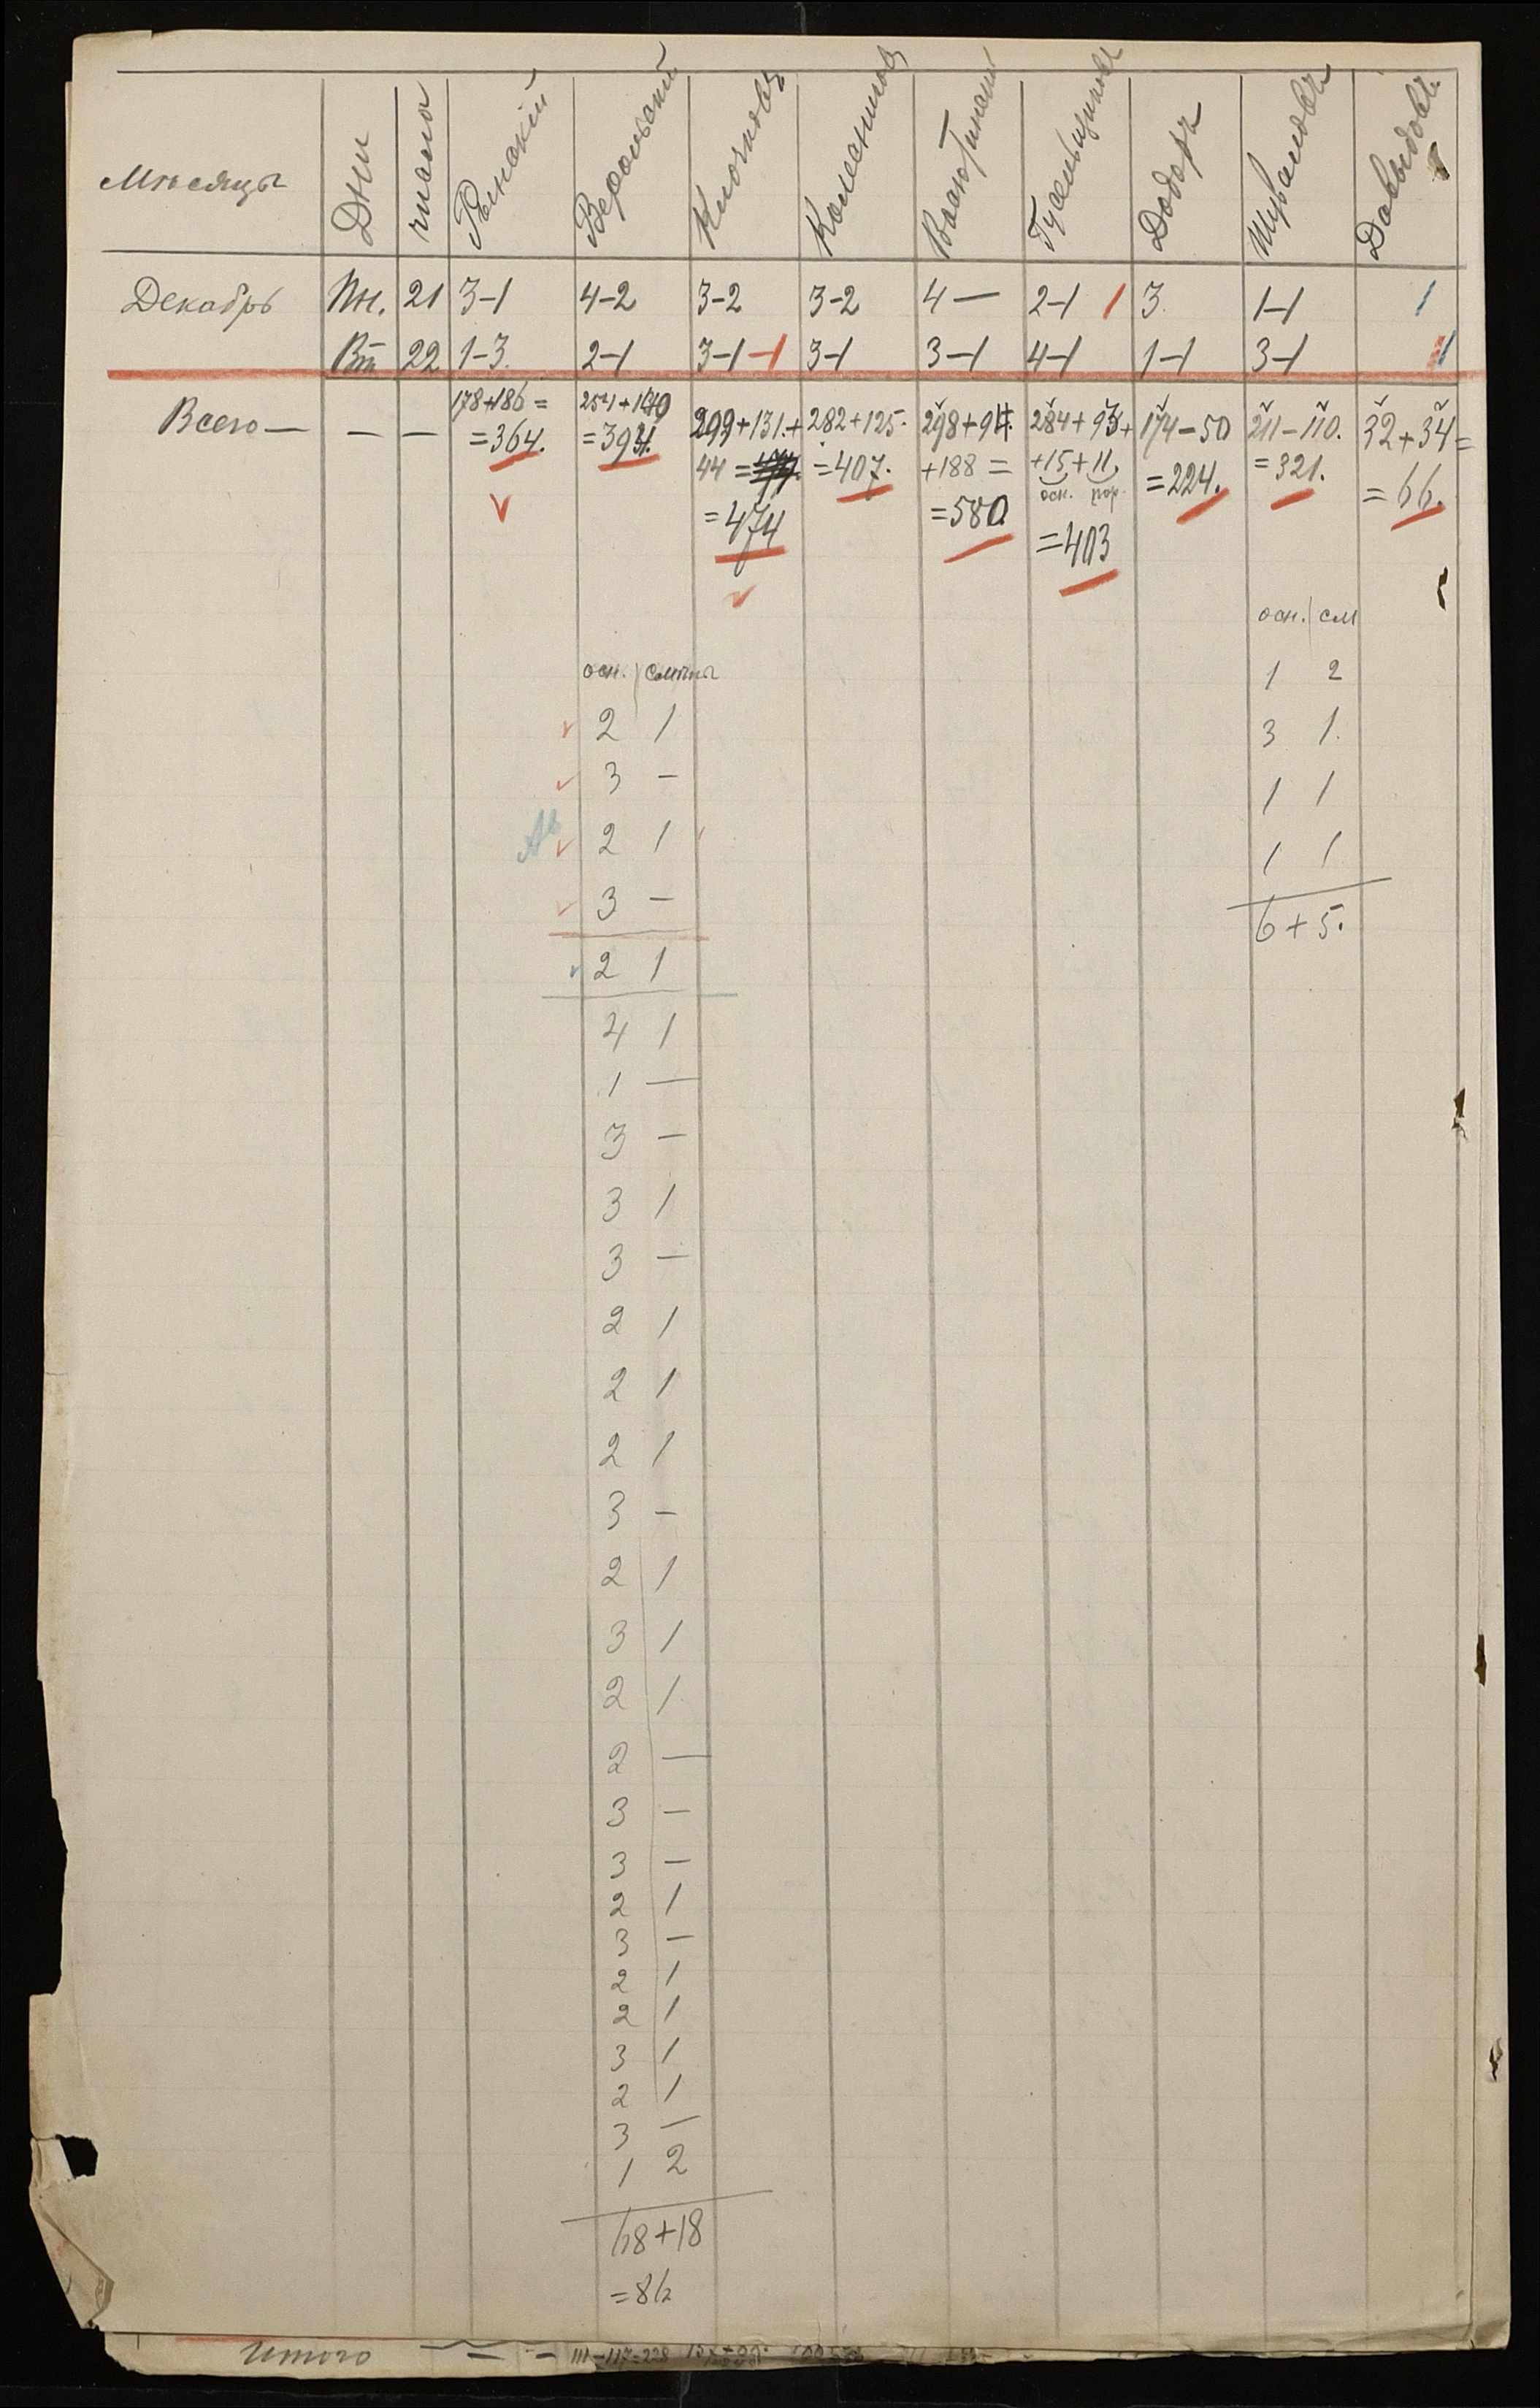 Мѣсяцы Дни число Рынскій Верольскій Клочковъ Колесников Васютинскій Гусельщиковъ Додоръ Шуваловъ Давыдовъ.
Декабрь Пн. 21 3-1 4-2 3-2 3-2 4— 2-1 1 3. 1-1 1
Вт 22 1-3. 2-1 3-1-1 3-1 3-1 4-1 1-1 3-1 1
Всего — — — 178+186= 254+140 299+131.+ 282+125. 298+94. 284+93+ 174-50 211-110. 32+34=
=364. =394. 44= =407. +188= +15+11. =224. =321. =66.
осн. пор.
=474 =580. =403
осн. см
1 2
3 1.
1 1
1 1
6+5.
осн. смѣны
2 1
3 —
2 1
3 —
2 1
4 1
1 —
3 —
3 1
3 —
2 1
2 1
2 1
3 —
2 1
3 1
2 1
2 —
3 —
3 —
2 1
3 —
2 1
2 1
3 1
2 1
3 —
1 2
68+18
=86
Итого — — — 111-117=228